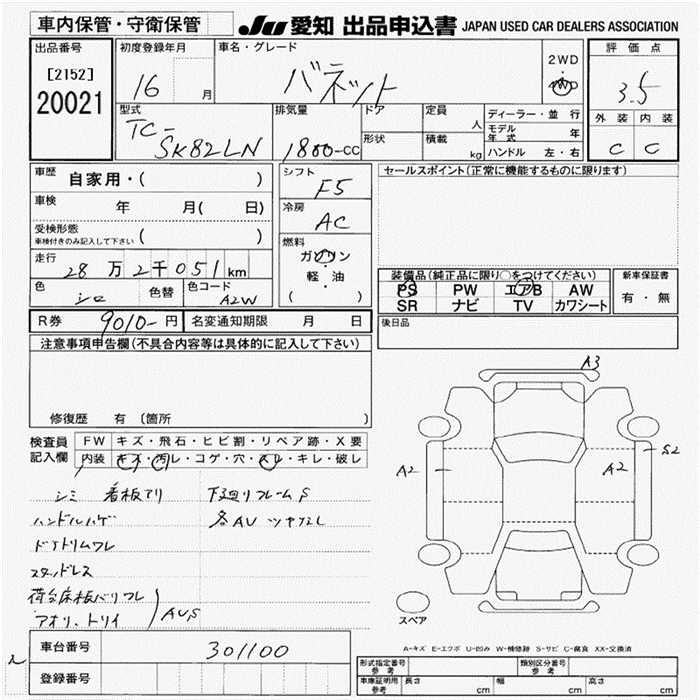 車内保管・守衛保管
JU 愛知 出品申込書 JAPAN USED CAR DEALERS ASSOCIATION
出品番号
[2152]
20021
初度登録年月
16 月
車名・グレード
バネット
2WD
4WD
評価点
3.5
外装 内装
C C
型式
TC-
SK82LN
排気量
1800-CC
ドア
形状
定員 人
積載 kg
ディーラー・並行
モデル年式 年
ハンドル 左・右
車歴 自家用・( )
車検 年 月( 日)
受検形態
車検付きのみ記入して下さい ( )
走行 28万2千051km
色 シロ 色替 色コード A2W
シフト F5
冷房 AC
燃料
ガソリン
軽・油
( )
セールスポイント(正常に機能するものに限ります)
装備品(純正品に限り○をつけてください)
PS PW エアB AW
SR ナビ TV カワシート
新車保証書
有・無
後日品
R券 9010-円 名変通知期限 月 日
注意事項申告欄(不具合内容等は具体的に記入して下さい)
修復歴 有 〔箇所 〕
検査員記入欄
FW キズ・飛石・ヒビ割・リペア跡・X要
内装 キズ・汚レ・コゲ・穴・スレ・キレ・破レ
シミ 看板アリ 下廻りフレームS
ハンドルハゲ 各AU ツヤナシ
ドアトリムワレ
スタッドレス
荷台床板バリワレ
アオリ、トリイ
AUS
A3
A2
A2
S2
スペア
A-キズ E-エクボ U-凹み W-補修跡 S-サビ C-腐食 XX-交換済
車台番号 301100
登録番号
形式指定番号 参考
類別区分番号 参考
車庫証明用 参考 長さ cm 幅 cm 高さ cm